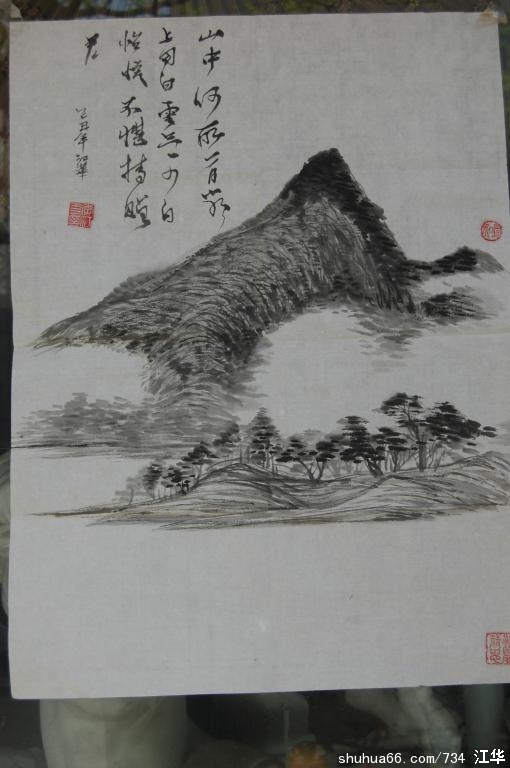 山中何所有嶺
上多白雲只可自
怡悦不堪持贈
君
己丑年江華
shuhua66.com/734 江华